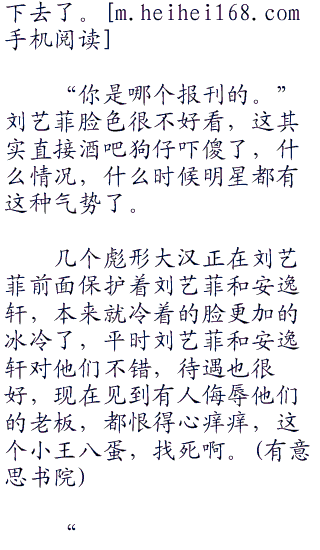 下去了。[m.heihei168.com
手机阅读]
“你是哪个报刊的。”
刘艺菲脸色很不好看，这其
实直接酒吧狗仔吓傻了，什
么情况，什么时候明星都有
这种气势了。
几个彪形大汉正在刘艺
菲前面保护着刘艺菲和安逸
轩，本来就冷着的脸更加的
冰冷了，平时刘艺菲和安逸
轩对他们不错，待遇也很
好，现在见到有人侮辱他们
的老板，都恨得心痒痒，这
个小王八蛋，找死啊。(有意
思书院)
“